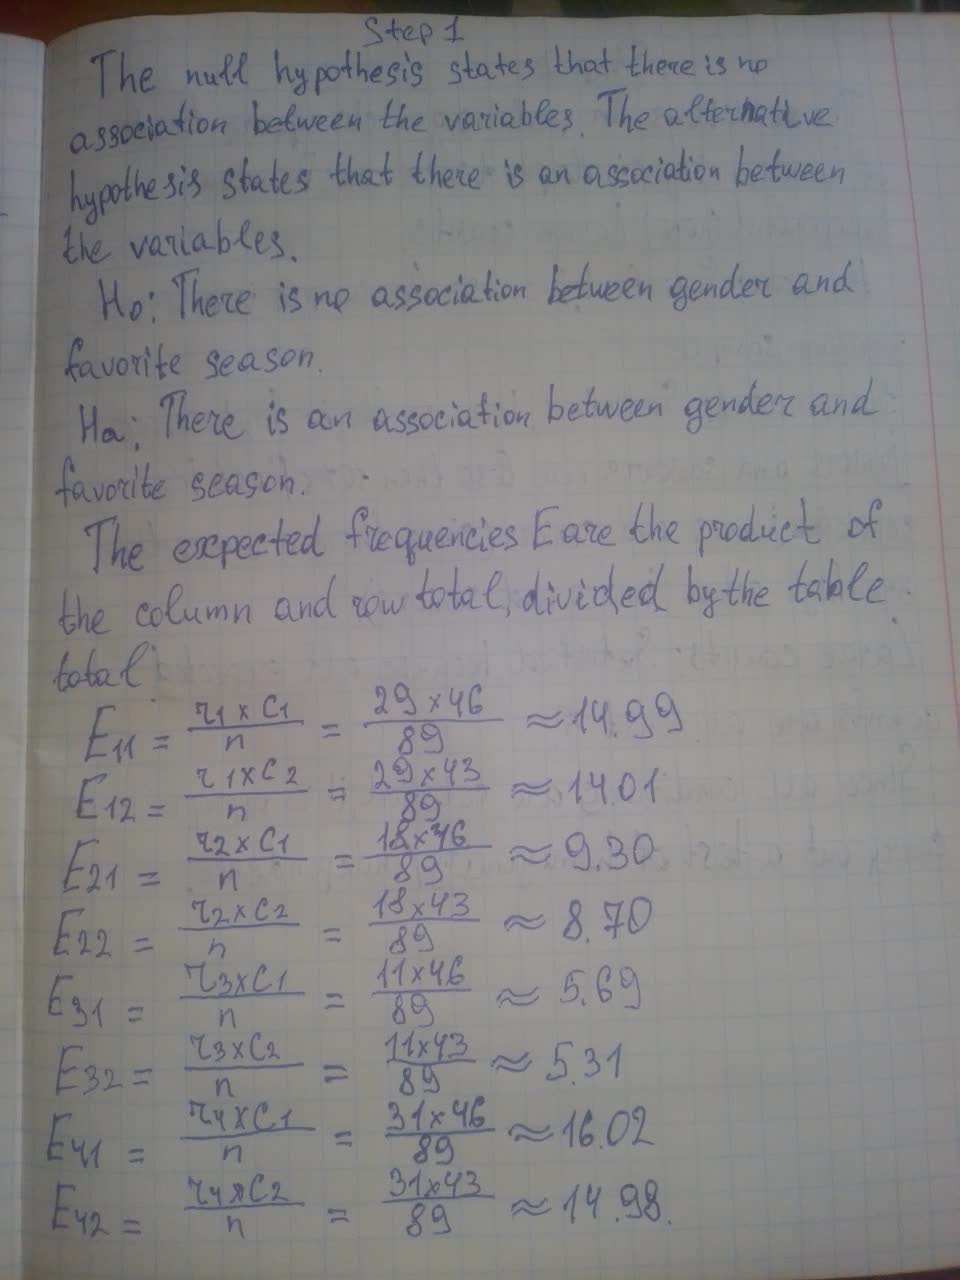 Step 1
The null hypothesis states that there is no
association between the variables. The alternative
hypothesis states that there is an association between
the variables.
H0: There is no association between gender and
favorite season.
Ha: There is an association between gender and
favorite season.
The expected frequencies E are the product of
the column and row total, divided by the table
total
E11 = r1 x c1 / n = 29 x 46 / 89 ≈ 14.99
E12 = r1 x c2 / n = 29 x 43 / 89 ≈ 14.01
E21 = r2 x c1 / n = 18 x 46 / 89 ≈ 9.30
E22 = r2 x c2 / n = 18 x 43 / 89 ≈ 8.70
E31 = r3 x c1 / n = 11 x 46 / 89 ≈ 5.69
E32 = r3 x c2 / n = 11 x 43 / 89 ≈ 5.31
E41 = r4 x c1 / n = 31 x 46 / 89 ≈ 16.02
E42 = r4 x c2 / n = 31 x 43 / 89 ≈ 14.98.